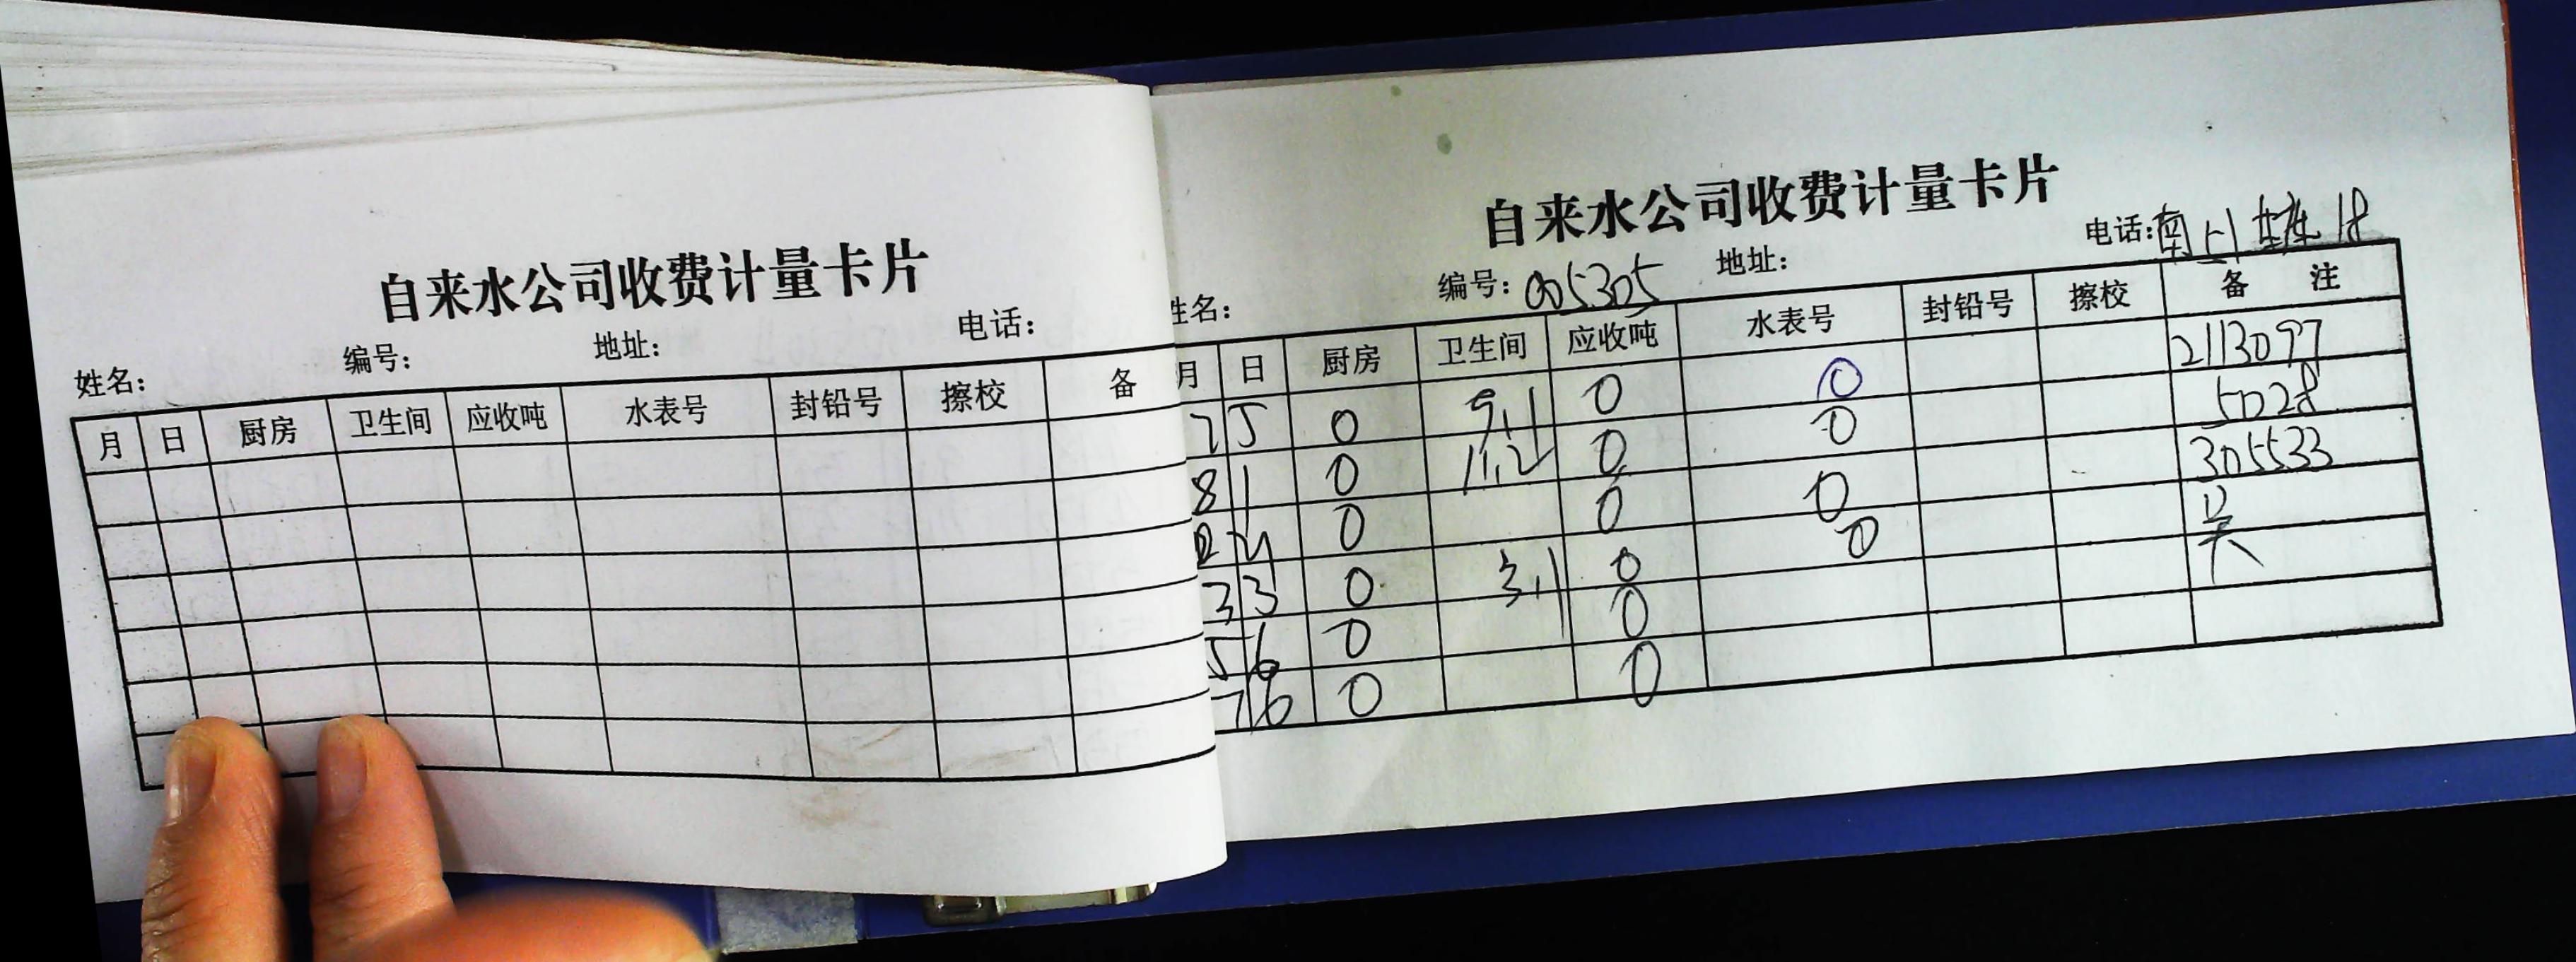 自来水公司收费计量卡片
姓名： 编号： 地址： 电话：
月 日 厨房 卫生间 应收吨 水表号 封铅号 擦校 备
自来水公司收费计量卡片
姓名： 编号：005305 地址： 电话：
月 日 厨房 卫生间 应收吨 水表号 封铅号 擦校 备注
7 5 0 9.1 0 0 2113097
8 1 0 11.2 0 0 5028
0 0 0 305533
3 3 0 3.1 0 0 吴
5 6 0 0
7 6 0 0